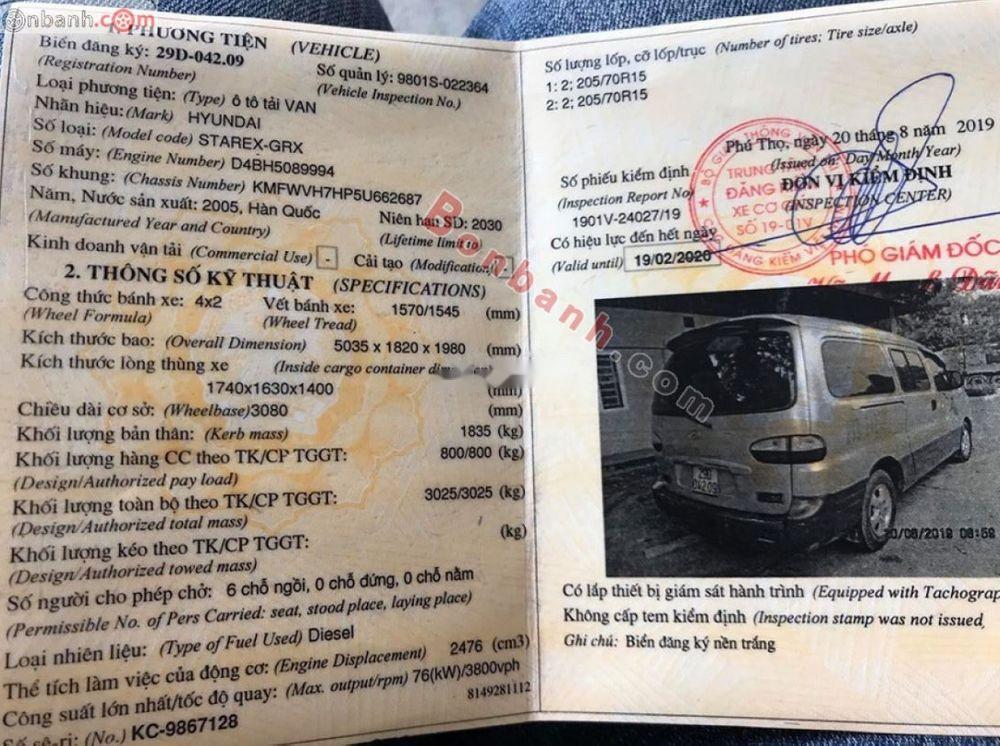 onbanh.com
1. PHƯƠNG TIỆN (VEHICLE)
Biển đăng ký: 29D-042.09
(Registration Number)
Số quản lý: 9801S-022364
(Vehicle Inspection No.)
Loại phương tiện: (Type) ô tô tải VAN
Nhãn hiệu: (Mark) HYUNDAI
Số loại: (Model code) STAREX-GRX
Số máy: (Engine Number) D4BH5089994
Số khung: (Chassis Number) KMFWVH7HP5U662687
Năm, Nước sản xuất: 2005, Hàn Quốc
(Manufactured Year and Country)
Niên hạn SD: 2030
(Lifetime limit to
Kinh doanh vận tải (Commercial Use) - Cải tạo (Modification) -
2. THÔNG SỐ KỸ THUẬT (SPECIFICATIONS)
Công thức bánh xe: 4x2 Vết bánh xe: 1570/1545 (mm)
(Wheel Formula) (Wheel Tread)
Kích thước bao: (Overall Dimension) 5035 x 1820 x 1980 (mm)
Kích thước lòng thùng xe (Inside cargo container
1740x1630x1400 (mm)
Chiều dài cơ sở: (Wheelbase)3080 (mm)
Khối lượng bản thân: (Kerb mass) 1835 (kg)
Khối lượng hàng CC theo TK/CP TGGT: 800/800 (kg)
(Design/Authorized pay load)
Khối lượng toàn bộ theo TK/CP TGGT: 3025/3025 (kg)
(Design/Authorized total mass)
Khối lượng kéo theo TK/CP TGGT: (kg)
(Design/Authorized towed mass)
Số người cho phép chở: 6 chỗ ngồi, 0 chỗ đứng, 0 chỗ nằm
(Permissible No. of Pers Carried: seat, stood place, laying place)
Loại nhiên liệu: (Type of Fuel Used) Diesel
Thể tích làm việc của động cơ: (Engine Displacement) 2476 (cm3)
Công suất lớn nhất/tốc độ quay: (Max. output/rpm) 76(kW)/3800vph
8149281112
Số sê-ri: (No.) KC-9867128
Số lượng lốp, cỡ lốp/trục (Number of tires; Tire size/axle)
1: 2; 205/70R15
2: 2; 205/70R15
Phú Thọ, ngày 20 tháng 8 năm 2019
(Issued on: Day/Month/Year)
Số phiếu kiểm định
(Inspection Report No)
1901V-24027/19
ĐƠN VỊ KIỂM ĐỊNH
(INSPECTION CENTER)
Có hiệu lực đến hết ngày
(Valid until) 19/02/2020
BỘ GIAO THÔNG VẬN
TRUNG
ĐĂNG
XE CƠ
SỐ 19-01V
ĐĂNG KIỂM
PHÓ GIÁM ĐỐC
Bonbanh.com
29D
042.09
20/08/2019 08:59
Có lắp thiết bị giám sát hành trình (Equipped with Tachograp
Không cấp tem kiểm định (Inspection stamp was not issued,
Ghi chú: Biển đăng ký nền trắng